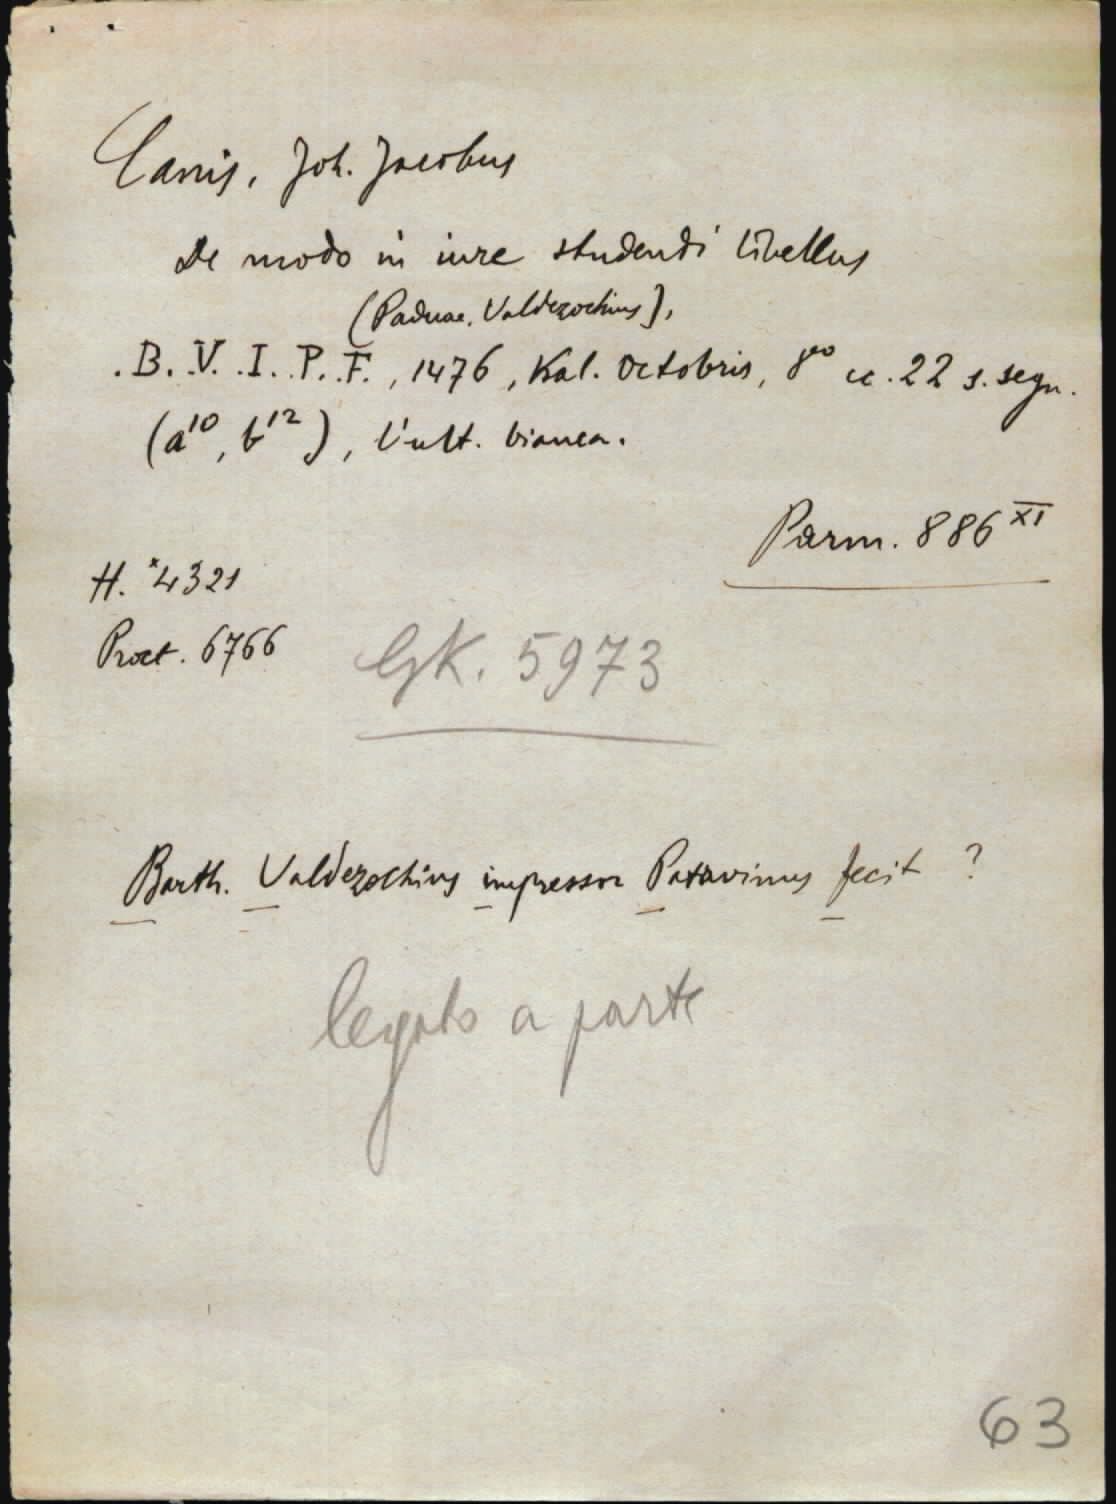 Canis, Joh. Jacobus
De modo in iure studendi libellus
(Paduae. Valdezochius),
.B. .V. .I. .P. .F. , 1476, Kal. Octobris, 8º cc. 22 s. segn.
(a10, b12), l'ult. bianca.
Parm. 886 XI
H. *4321
Proct. 6766
GK. 5973
Barth. Valdezochius impressor Patavinus fecit ?
legato a parte
63